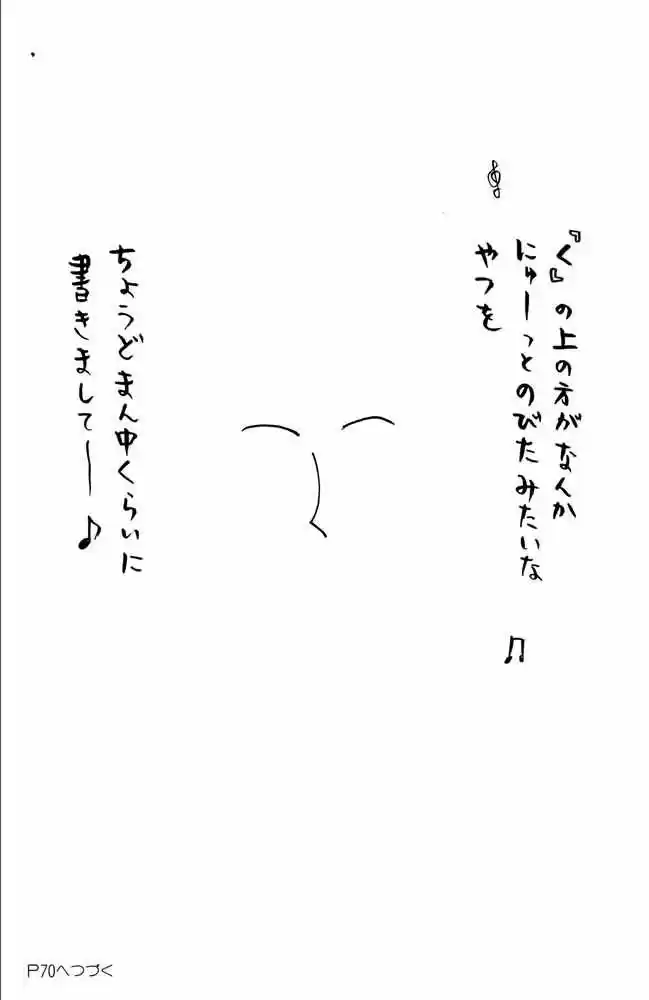 『く』の上の方がなんか
にゅーっとのびたみたいな
やつを
ちょうどまん中くらいに
書きましてー♪
P70へつづく